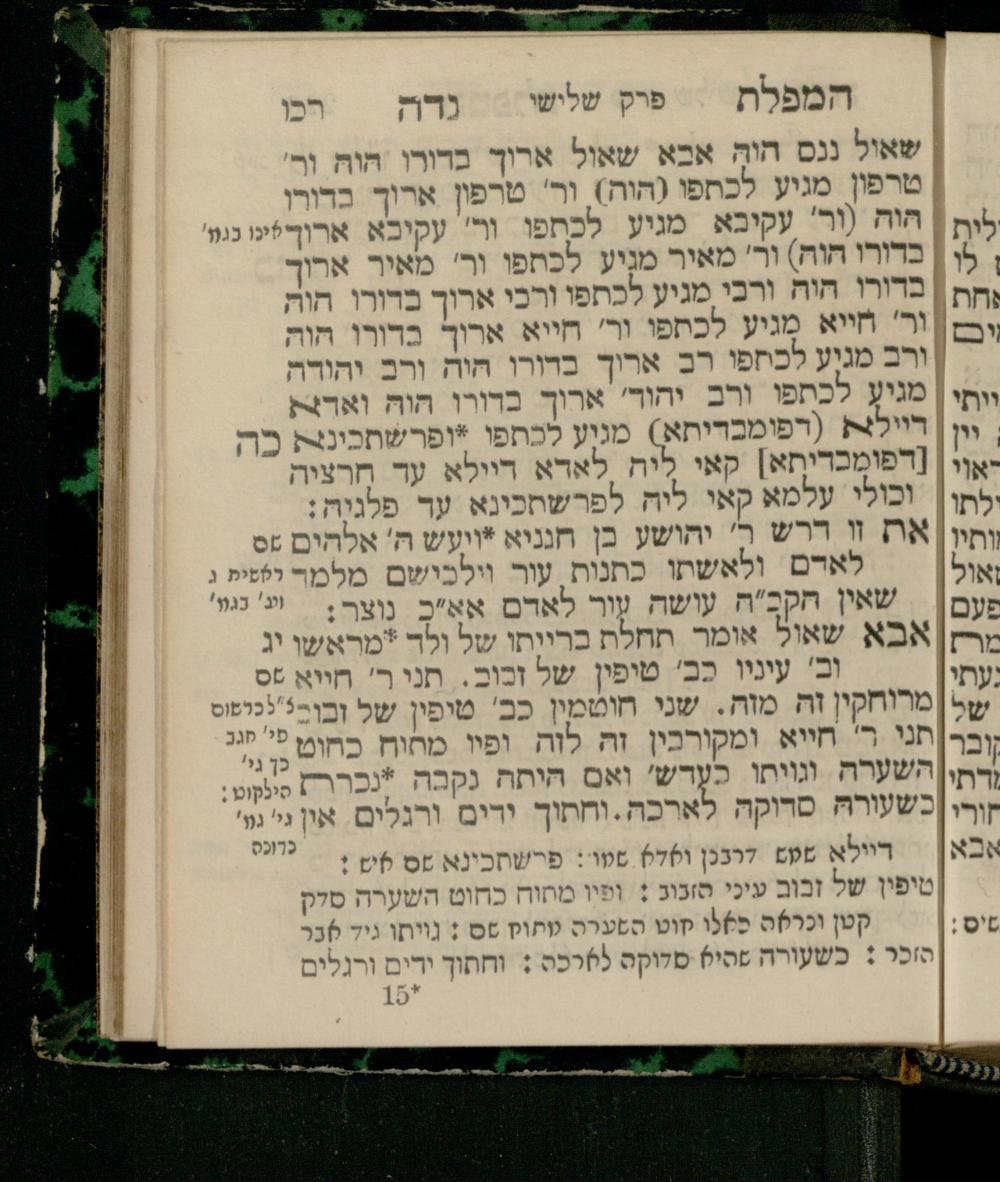 המפלת פרק שלישי נדה רכו
שאול ננס הוה אבא שאול ארוך בדורו הוה ור׳
טרפון מגיע לכתפו (הוה) ור׳ טרפון ארוך בדורו
הוה (ור׳ עקיבא מגיע לכתפו ור׳ עקיבא ארוך
אינו בגמ׳
בדורו הוה) ור׳ מאיר מגיע לכתפו ור׳ מאיר ארוך
בדורו הוה ורבי מגיע לכתפו ורבי ארוך בדורו הוה
ור׳ חייא מגיע לכתפו ור׳ חייא ארוך בדורו הוה
ורב מגיע לכתפו רב ארוך בדורו הוה ורב יהודה
מגיע לכתפו ורב יהוד׳ ארוך בדורו הוה ואדא
דיילא (דפומבדיתא) מגיע לכתפו *ופרשתבינא
כה
[דפומבדיתא] קאי ליה לאדא דיילא עד חרציה
וכולי עלמא קאי ליה לפרשתבינא עד פלגיה:
את זו דרש ר׳ יהושע בן חנניא *ויעש ה׳ אלהים
שם
לאדם ולאשתו כתנות עור וילבישם מלמד
ראשית ג
שאין הקב״ה עושה עור לאדם אא״כ נוצר:
וע׳ בגמ׳
אבא שאול אומר תחלת ברייתו של ולד *מראשו
יג
וב׳ עיניו כב׳ טיפין של זבוב. תני ר׳ חייא
שם
מרוחקין זה מזה. שני חוטמין כב׳ טיפין של זבוב
נ״ל כרשום
תני ר׳ חייא ומקורבין זה לזה ופיו מתוח כחוט
פי׳ חגב
השערה וגויתו כעדש׳ ואם היתה נקבה *נכררת
כך גי׳
הילקוט:
כשעורה סדוקה לארכה. וחתוך ידים ורגלים אין
גי׳ גמ׳
נדונה
דיילא שמש דרבנן ואדא שמו: פרשתבינא שם איש:
טיפין של זבוב עיני הזבוב: ופיו מתוח כחוט השערה סדק
קטן ונראה כאלו חוט השערה מתוח שם: גויתו גיד אבר
הזכר: כשעורה שהיא סדוקה לארכה: וחתוך ידים ורגלים
15*
לית
לו
אחת
ים
ייתי
יין
ראוי
ילתו
שאול
פעם
געתי
של
קובר
חורי
אבא